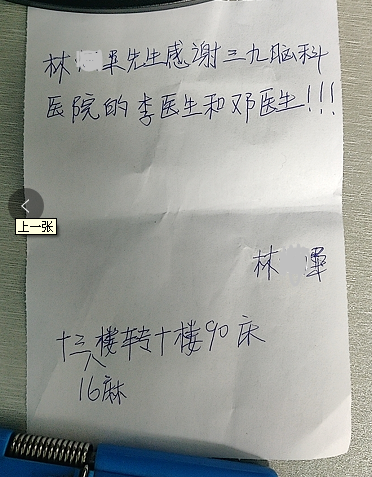 林先生感谢三九脑科
医院的李医生和邓医生!!!
上一张
林
十三楼转十楼90床
16麻